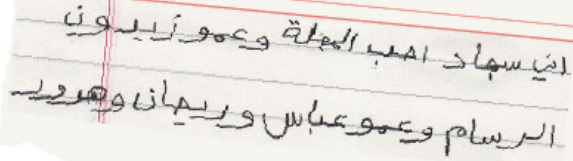 اني سجاد احب المجلة وعمو زيدون
الرسام وعمو عباس وريحان وهدود